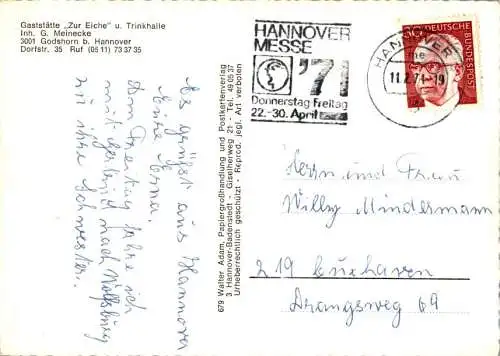 Gaststätte „Zur Eiche" u. Trinkhalle
Inh. G. Meinecke
3001 Godshorn b. Hannover
Dorfstr. 35 Ruf (05 11) 73 37 35
Es grüsst aus Hannover
eure Erna.
Am Freitag fahre ich
mit Gerlind nach Wolfsburg
zu ihrer Schwester.
679 Walter Adam, Papiergroßhandlung und Postkartenverlag
3 Hannover-Badenstedt - Giselherweg 21 - Tel. 49 05 37
Urheberrechtlich geschützt - Reprod. jegl. Art verboten
HANNOVER
MESSE
'71
Donnerstag Freitag
22.-30. April
HANNOVER
me
11.2.71-19
30
DEUTSCHE BUNDESPOST
Herrn und Frau
Willy Mindermann
219 Cuxhaven
Drangsweg 69